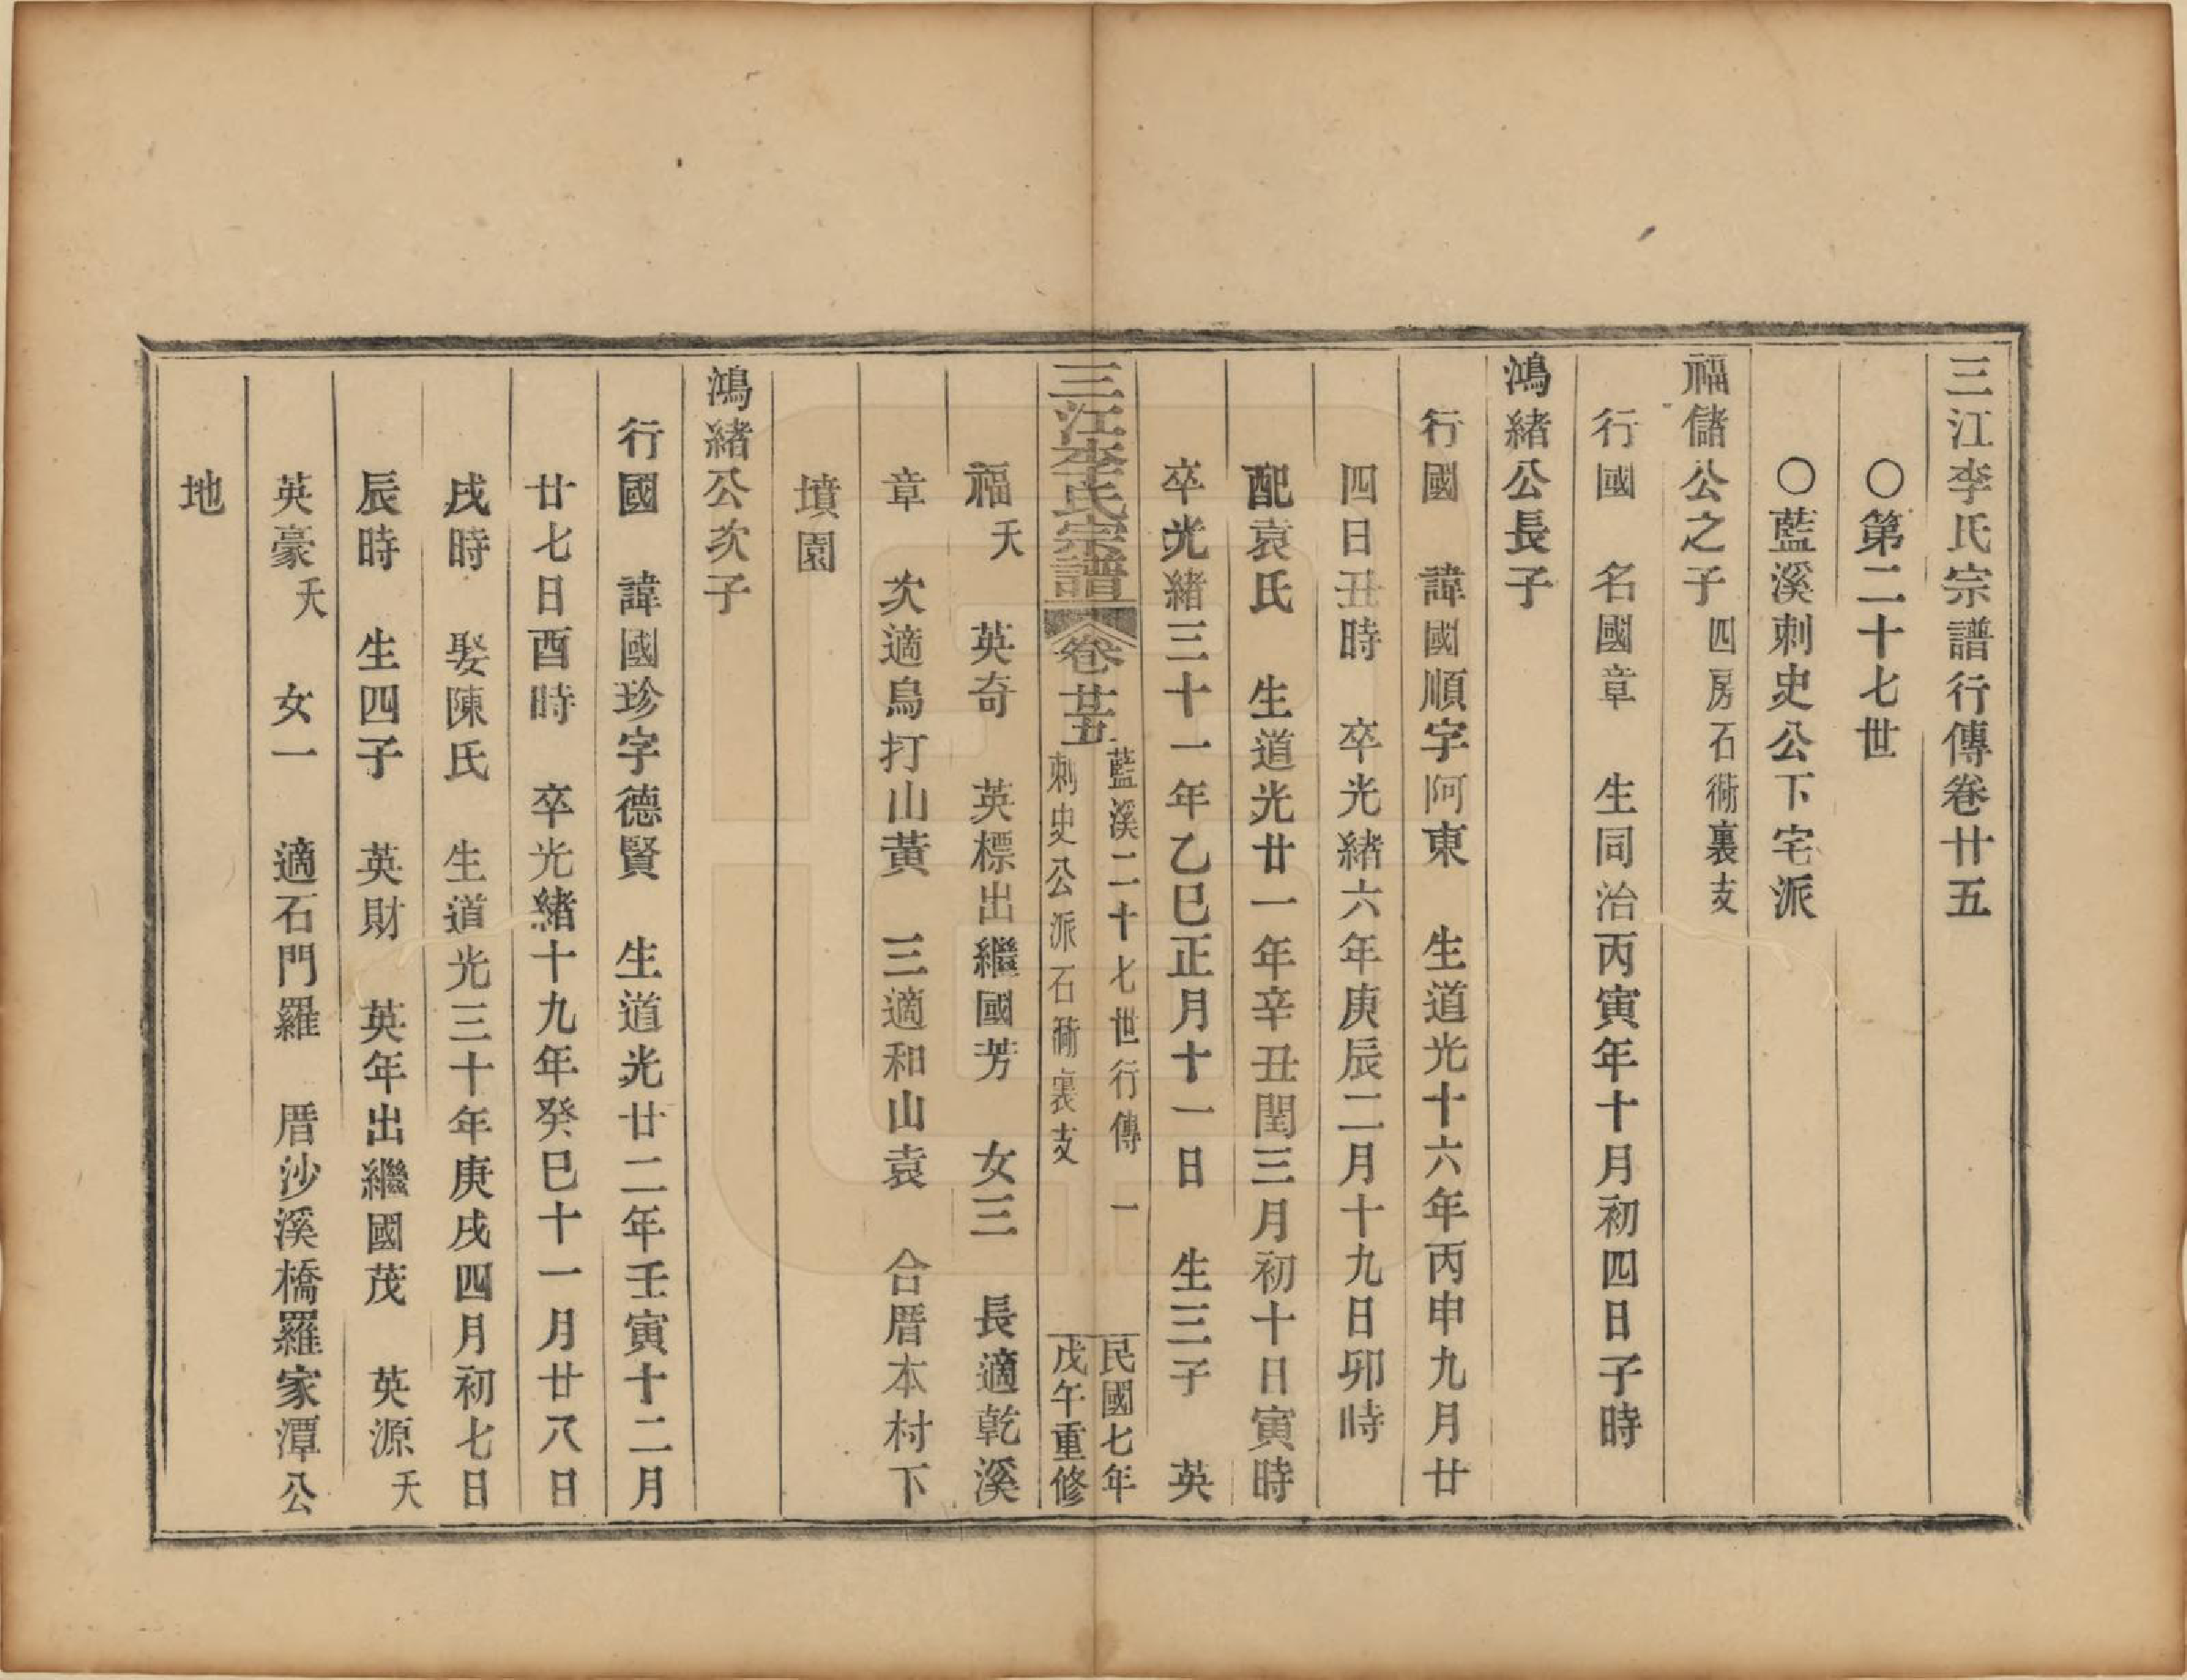 三江李氏宗譜行傳卷廿五
〇第二十七世
〇藍溪刺史公下宅派
福儲公之子 四房石衕裏支
行國 名國章 生同治丙寅年十月初四日子時
鴻緒公長子
行國 諱國順字阿東 生道光十六年丙申九月廿
四日丑時 卒光緒六年庚辰二月十九日卯時
配袁氏 生道光廿一年辛丑閏三月初十日寅時
卒光緒三十一年乙巳正月十一日 生三子 英
三江李氏宗譜 卷廿五
藍溪二十七世行傳 一
刺史公派石衕裏支
民國七年
戊午重修
福 夭 英奇 英標出繼國芳 女三 長適乾溪
章 次適烏打山黃 三適和山袁 合厝本村下
墳園
鴻緒公次子
行國 諱國珍字德賢 生道光廿二年壬寅十二月
廿七日酉時 卒光緒十九年癸巳十一月廿八日
戌時 娶陳氏 生道光三十年庚戌四月初七日
辰時 生四子 英財 英年出繼國茂 英源 夭
英豪 夭 女一 適石門羅 厝沙溪橋羅家潭公
地